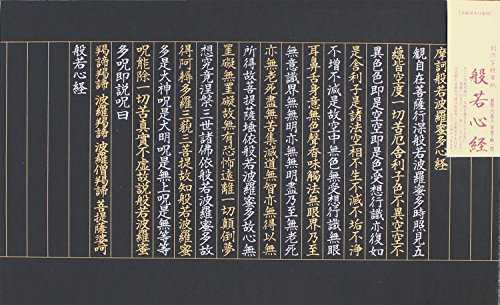 般若心経
摩訶般若波羅蜜多心経
觀自在菩薩行深般若波羅蜜多時照見五
蘊皆空度一切苦厄舎利子色不異空空不
異色色即是空空即是色受想行識亦復如
是舎利子是諸法空相不生不滅不垢不淨
不增不減是故空中無色無受想行識無眼
耳鼻舌身意無色聲香味觸法無眼界乃至
無意識界無無明亦無無明盡乃至無老死
亦無老死盡無苦集滅道無智亦無得以無
所得故菩提薩埵依般若波羅蜜多故心無
罣礙無罣礙故無有恐怖遠離一切顛倒夢
想究竟涅槃三世諸佛依般若波羅蜜多故
得阿耨多羅三藐三菩提故知般若波羅蜜
多是大神呪是大明呪是無上呪是無等等
呪能除一切苦真實不虚故説般若波羅蜜
多呪即説呪曰
羯諦羯諦 波羅羯諦 波羅僧羯諦 菩提薩婆呵
般若心経